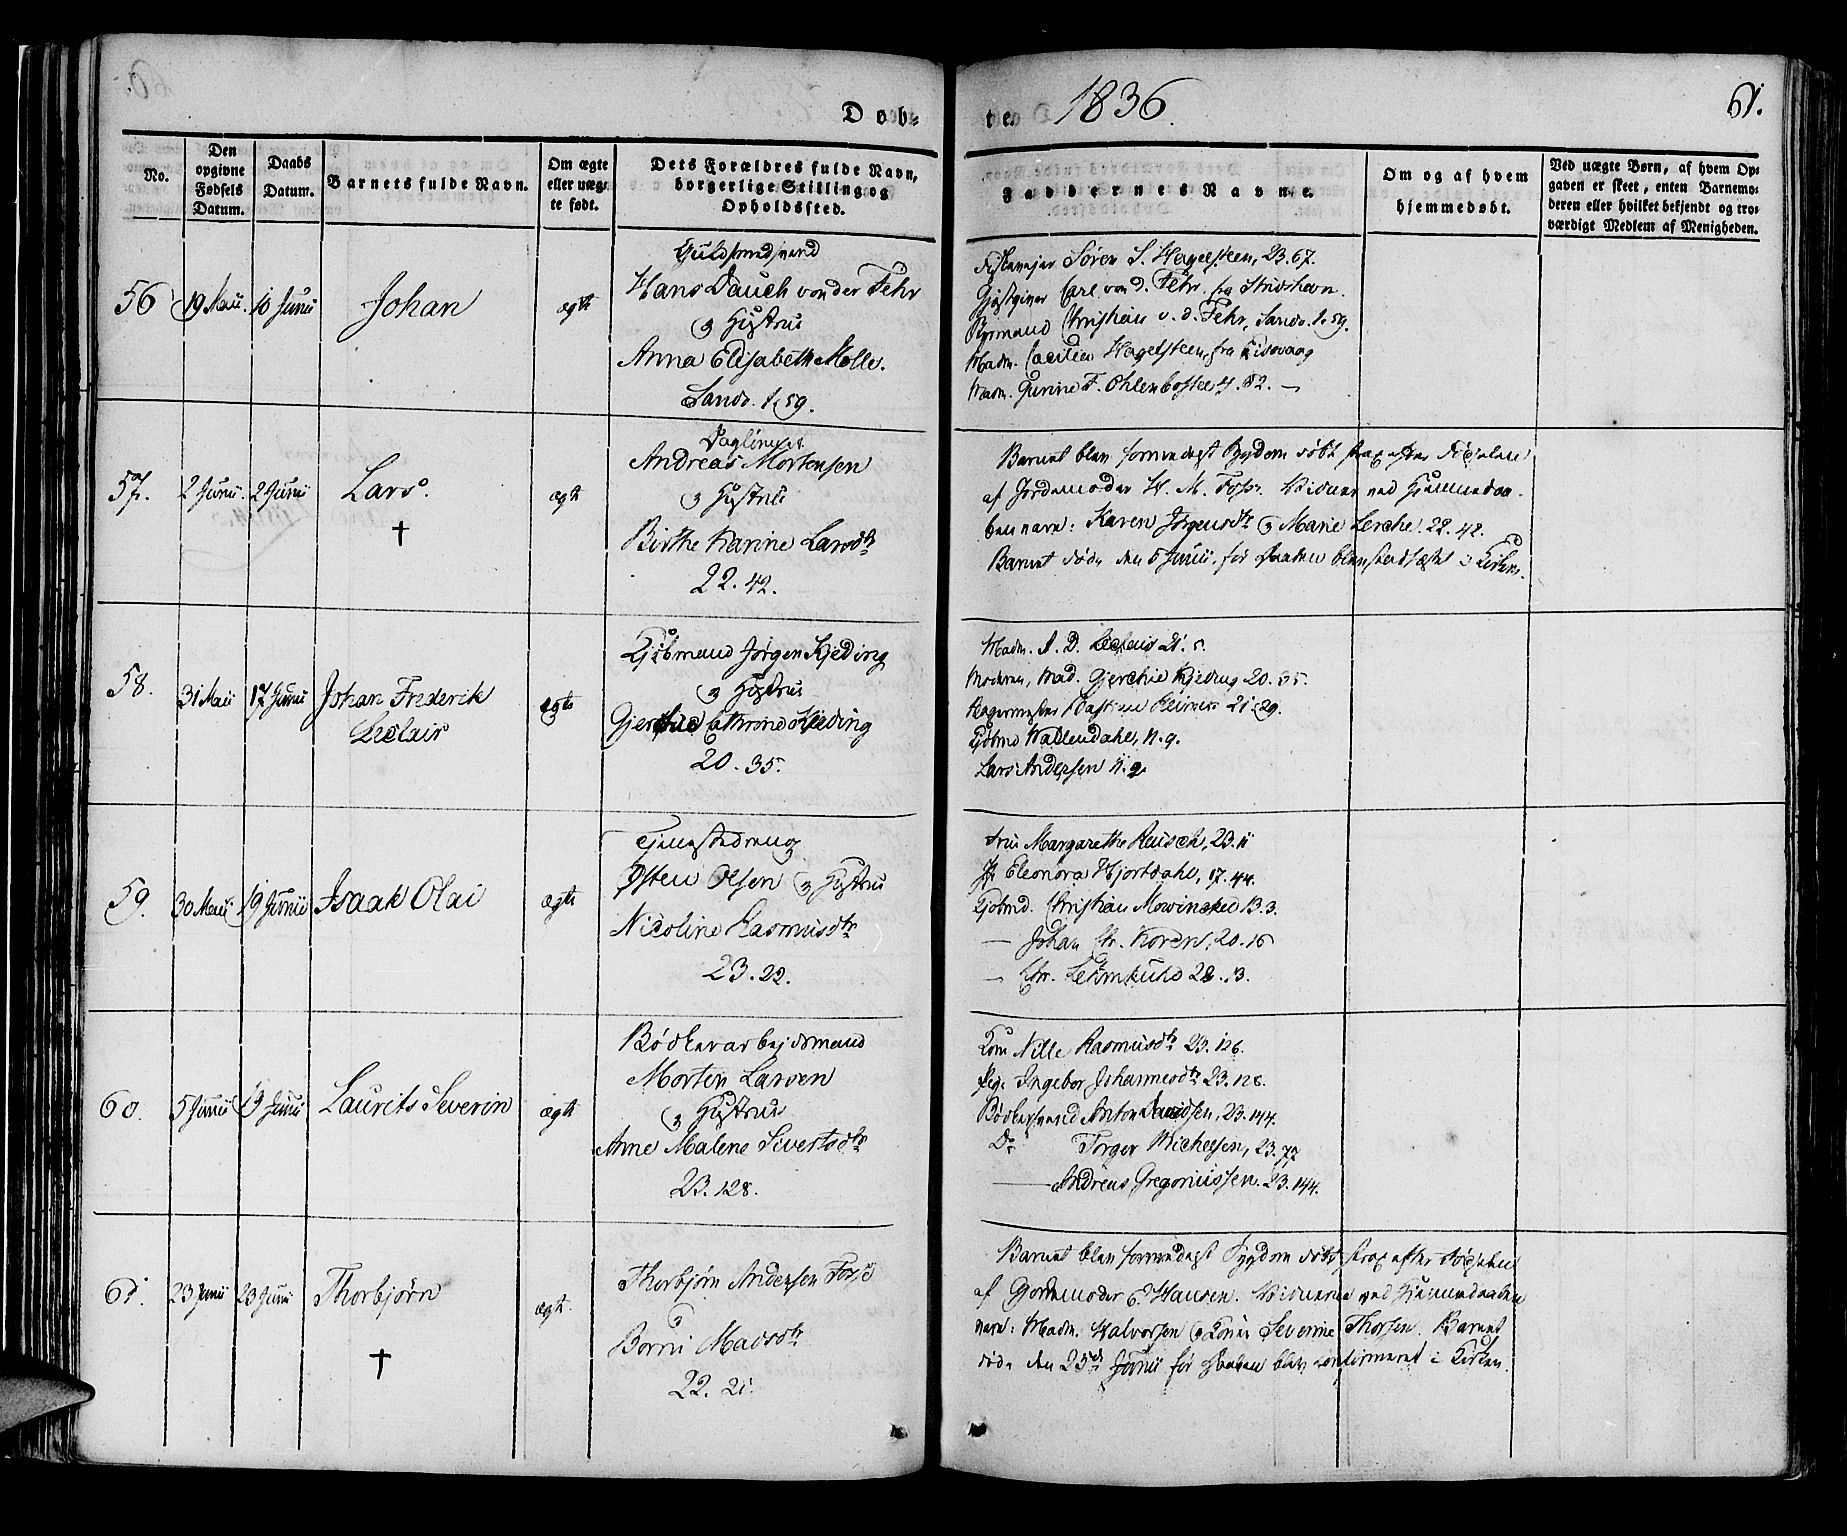 Døb-
te
1836.
61.
No.
Den
opgivne
Fødsels
Datum.
Daabs
Datum.
Barnets fulde Navn.
Om ægte
eller uæg-
te født.
Dets Forældres fulde Navn,
borgerlige Stilling og
Opholdssted.
Faddernes Navne.
Om og af hvem
hjemmedøbt.
Ved uægte Børn, af hvem Op-
gaven er skeet, enten Barnemo-
deren eller hvilket bekjendt og tro-
værdigt Medlem af Menigheden.
56
19 Maii.
10 Junii
Johan
ægte
Guldsmedsvend
Hans Dauch von der Fehr
og Hustrue
Anna Elisabeth Molle.
Sands. 1.59.
Søren S. Hagelsteen, 23.67.
Gjæstgiver Carl von d. Fehr, fra
Styrmand Christian v. d. Fehr, Sands. 1.59.
Madm. Cæcilia Hagelsteen, fra
Madm. Gurine F. Ohlenbostel 4.52. —
57.
2 Junii.
2 Junii
Lars.
†
ægte
Andreas Mortensen
og Hustrue
Birthe Karine Larsdtr
22. 42.
Barnet blev formedelst Sygdom døbt strax efter Fødselen
af Jordemoder H. M. Foss. Vidner ved Hjemmedaa-
ben vare: Karen Jørgensdtr og Marie Lerche. 22.42.
Barnet døde den 5 Junii, før Daaben blev stadfæstet i Kirken.
58.
31 Maii
17 Junii
Johan Frederik
Leclair
ægte
Kjøbmand Jørgen Kjeding
og Hustrue
Cathrine Kjeding
20. 35.
Madm. 21. 5.
Moderen, Mad. Kjeding 20. 35.
21.29.
Kjøbmd Wallendahl, 11.9.
Lars Andersen 11.9.
59.
30 Maii
19 Junii
Isaak Olai
ægte
Tjenestedreng
Østen Olsen og Hustrue
Nicoline Rasmusdtr
23. 22.
Fru Margarethe Reusch, 23.11
Jf. Eleonora Hjortdahl, 17.44.
Kjøbmd. Christian Mowinckel 13.3.
— Johan Chr. Koren, 20.16
— Chr. Lehmkuhl 28.13.
60.
5 Junii
19 Junii
Laurits Severin
ægte
Bødkerarbejdsmand
Morten Larsen
og Hustrue
Anne Malene Sivertsdtr
23. 128.
Kone Nille Rasmusdtr 23. 126.
Pige Ingebor Johannesdtr 23. 128.
Bødkersvend Anton Davidsen, 23.144.
Do Torger Michelsen, 23.77
— Andreas Gregoriussen. 23.144.
61.
23 Junii
23 Junii
Thorbjørn
†
ægte
Thorbjørn Andersen
og
Madsdtr
22. 21.
Barnet blev formedelst Sygdom døbt strax efter Fødselen
af Gjordemoder C. Hansen. Vidnerne ved Hjemmedaaben
vare: Madm. Halvorsen og Kone Severine Thorsen. Barnet
døde den 25de Junii før Daaben blev confirmeret i Kirken.